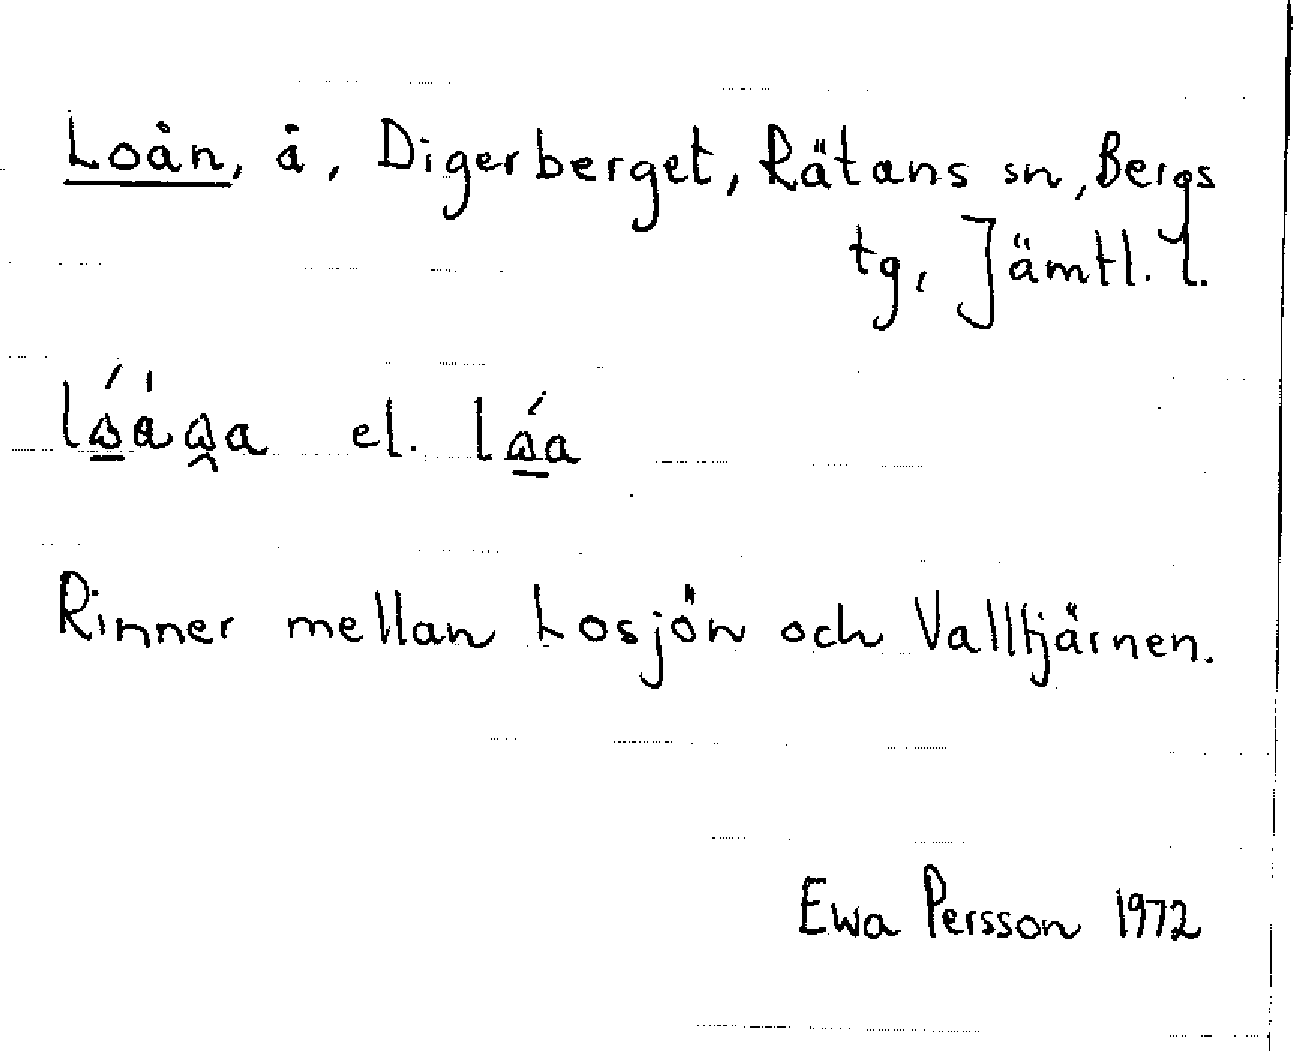 Loån, å, Digerberget, Rätans sn, Bergs
tg, Jämtl. l.
el.
Rinner mellan Losjön och Valltjärnen.
Ewa Persson 1972